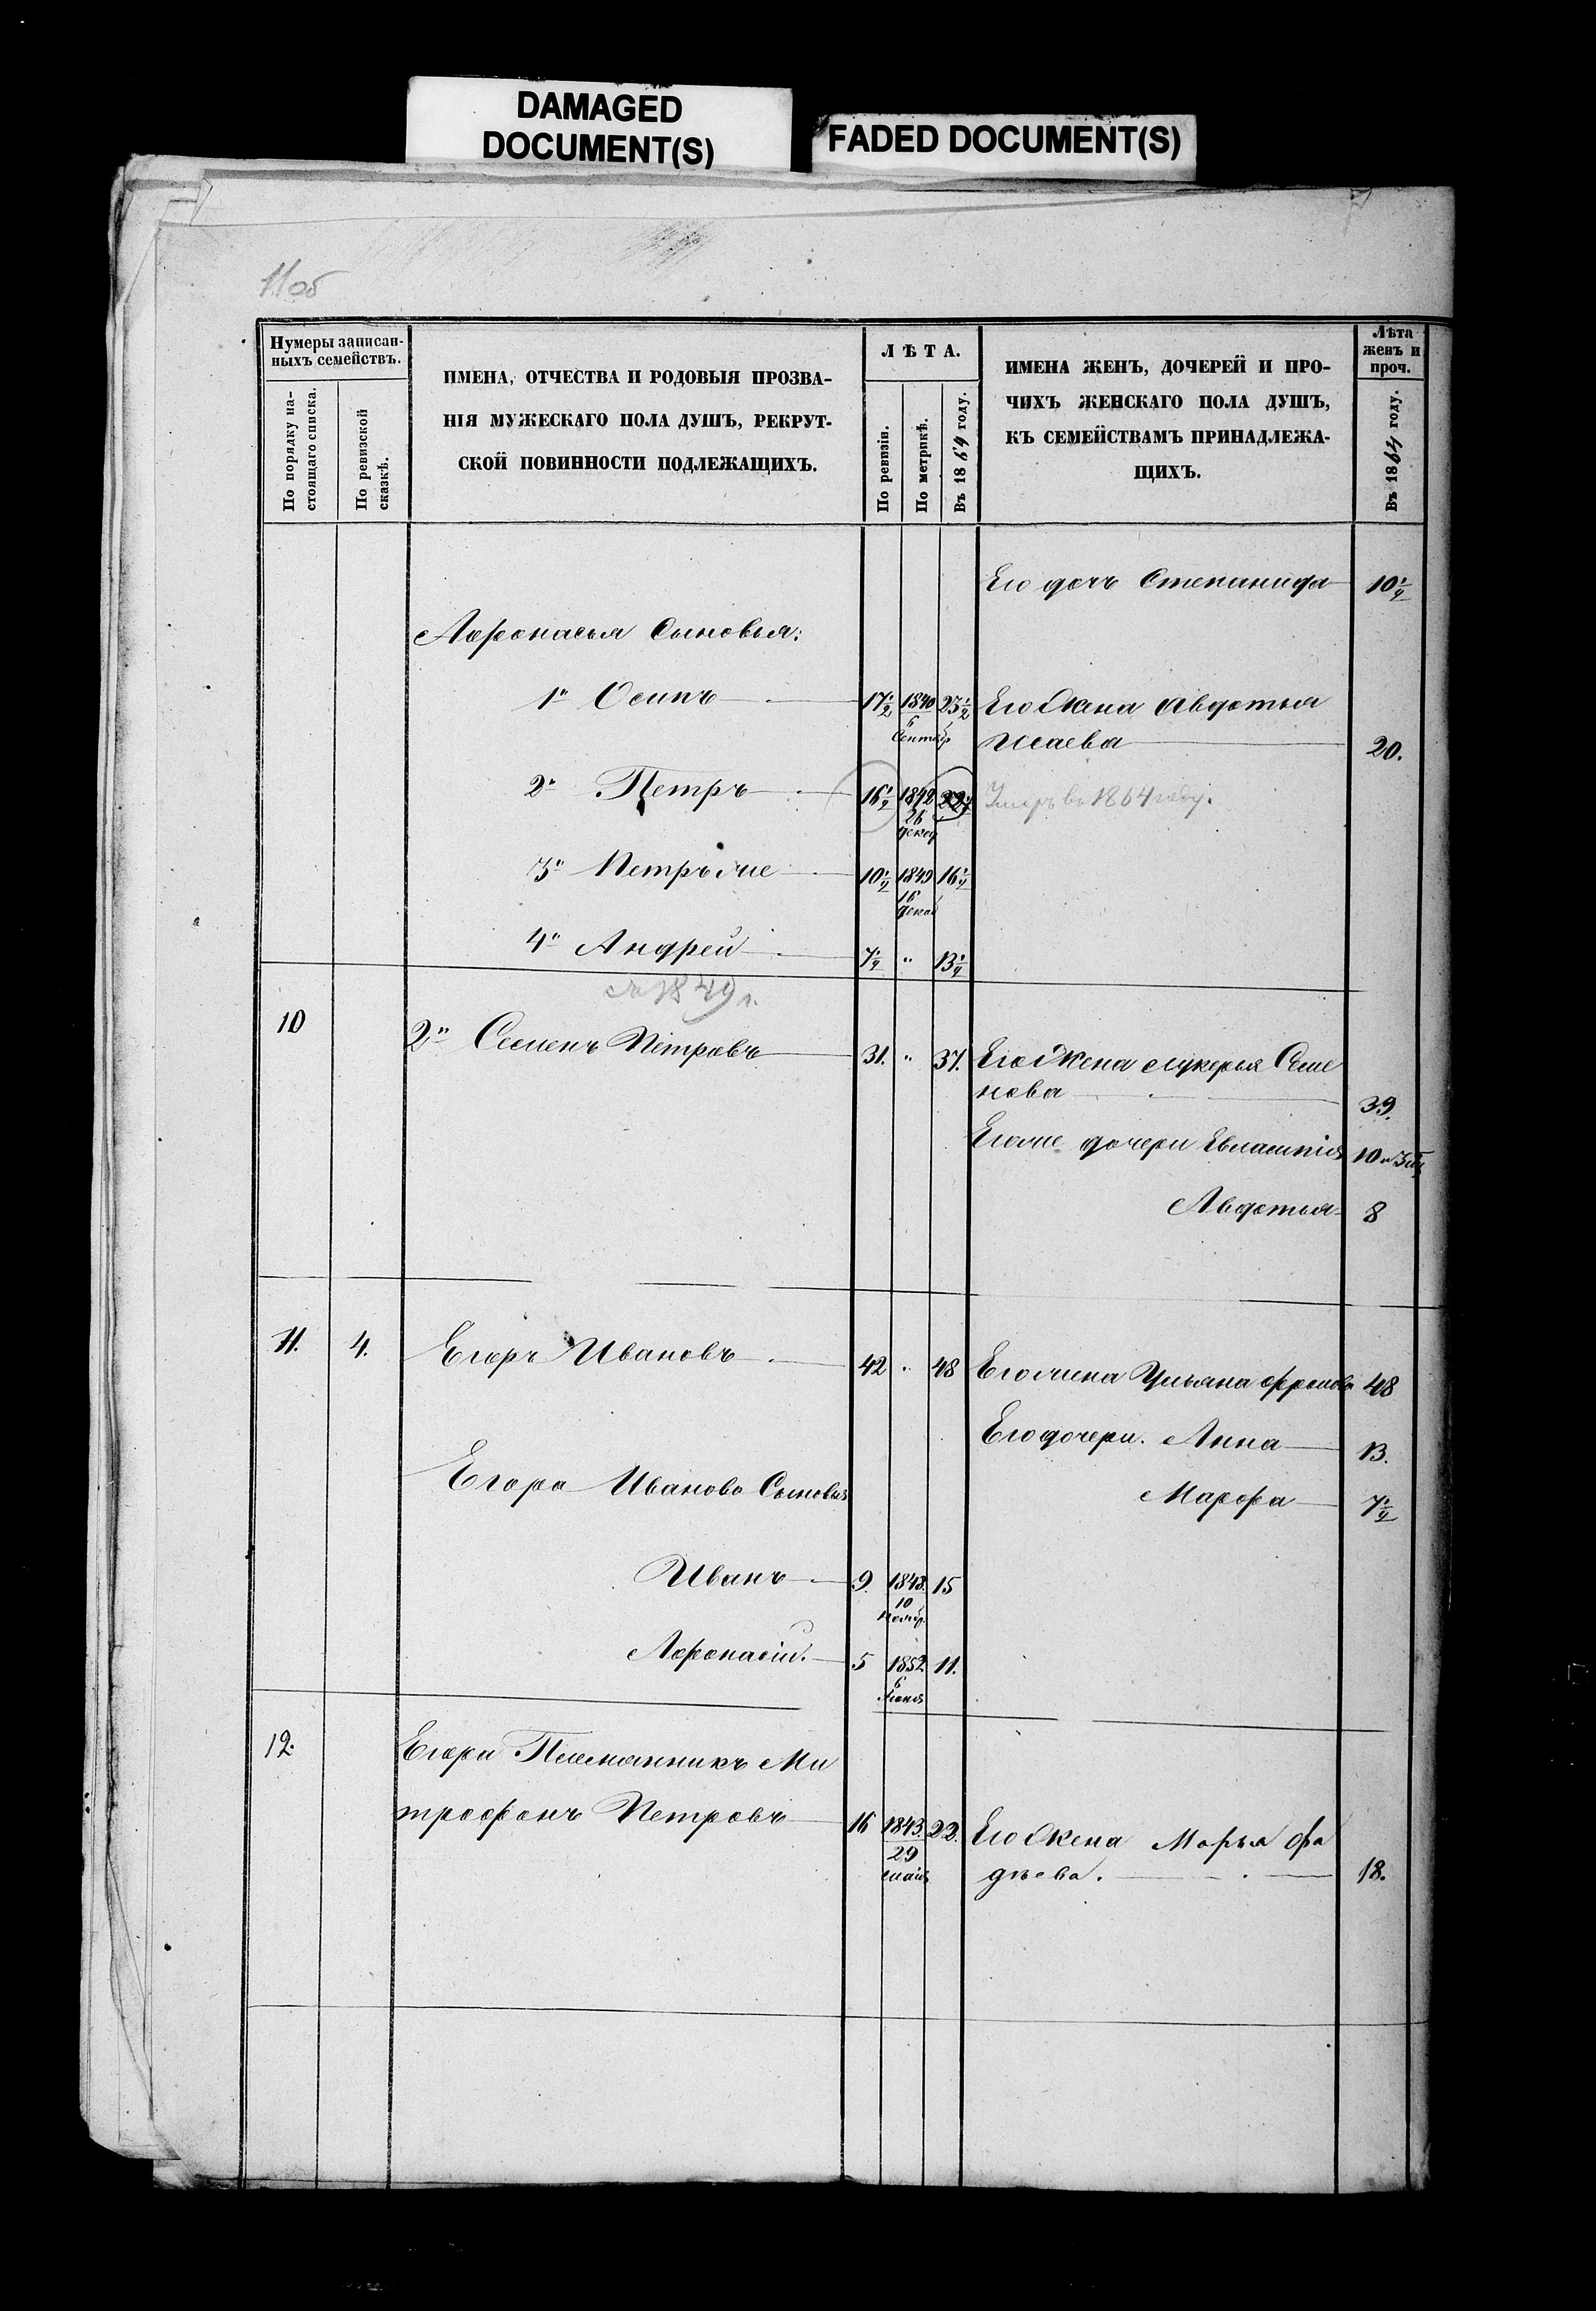 DAMAGED
DOCUMENT(S)
FADED DOCUMENT(S)
11об
Нумеры записан-
ныхъ семействъ.
По порядку на-
стоящаго списка.
По ревизской
сказкѣ.
ИМЕНА, ОТЧЕСТВА И РОДОВЫЯ ПРОЗВА-
НІЯ МУЖЕСКАГО ПОЛА ДУШЪ, РЕКРУТ-
СКОЙ ПОВИННОСТИ ПОДЛЕЖАЩИХЪ.
ЛѢТА.
По ревизіи.
По метрикѣ.
Въ 1864 году.
ИМЕНА ЖЕНЪ, ДОЧЕРЕЙ И ПРО-
ЧИХЪ ЖЕНСКАГО ПОЛА ДУШЪ,
КЪ СЕМЕЙСТВАМЪ ПРИНАДЛЕЖА-
ЩИХЪ.
Лѣта
женъ и
проч.
Въ 1864 году.
Его дочь Степанида 10½
Афонасья Сыновья:
1й Осипъ 17½ 1840 23½ Его Жена Авдотья
6
Сентяб Исаева 20.
2й Петръ 16½ 1842 Умеръ въ 1864 году.
26
декаб
3й Петръ же 10½ 1849 16½
16
декаб
4й Андрей 7½ " 13½
1849 г.
10 2й Семенъ Петровъ 31. " 37. Его Жена Лукерья Семе
нова 39.
Его же дочери Евлампія 10 и 3 м
Авдотья 8
11. 4. Егоръ Ивановъ 42 " 48 Его жена Ульяна 48
Его дочери. Анна 13.
Егора Иванова Сыновья
Марфа 7½
Иванъ 9. 1848. 15
10
Ноябр.
Афонасій. 5 1852. 11.
6
12. Егора Племянникъ Ми
трофанъ Петровъ 16 1843. 22. Его Жена Марья Фа
29
маія дѣева. 18.